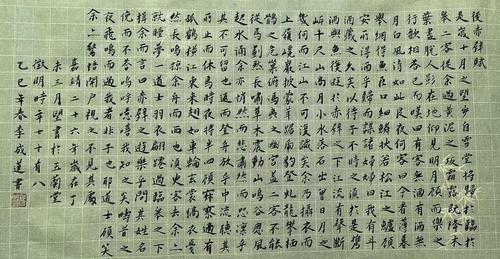 後赤壁賦
是歲十月之望步自雪堂將歸於臨
皋二客從余過黃泥之坂霜露既降木
葉盡脫人影在地仰見明月顧而樂之
行歌相答已而嘆曰有客無酒有酒無肴
月白風清如此良夜何客曰今者薄暮
舉網得魚巨口細鱗狀若松江之鱸顧
安所得酒乎歸而謀諸婦婦曰我有斗
酒藏之久矣以待子不時之須於是攜
酒與魚復遊於赤壁之下江流有聲斷
岸千尺山高月小水落石出曾日月之
幾何而江山不可復識矣余乃攝衣而
上履巉巖披蒙茸踞虎豹登虬龍攀栖
鶻之危巢俯馮夷之幽宮蓋二客不能
從焉劃然長嘯草木震動山鳴谷應風
起水涌余亦悄然而悲肅然而恐凜乎
其不可留也返而登舟放乎中流聽其
所止而休焉時夜將半四顧寂寥適有
孤鶴橫江東來翅如車輪玄裳縞衣戛
然長鳴掠余舟而西也須臾客去余亦
就睡夢一道士羽衣翩躚過臨皋之下
揖余而言曰赤壁之遊樂乎問其姓名
俛而不答嗚呼噫嘻我知之矣疇昔之
夜飛鳴而過我者非子也耶道士顧笑
余亦驚悟開戶視之不見其處
嘉靖二十六年歲在丁
未三月望書于玉蘭堂
徵明時年七十有八
乙巳年春李成蓮書